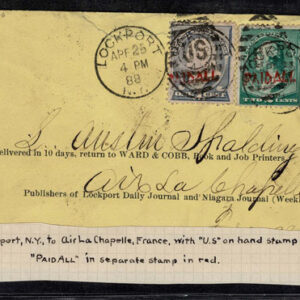 LOCKPORT
APR 25
4 PM
88
N.Y.
US
PAID ALL
PAID ALL
TWO CENTS
L. Austin Spalding
elivered in 10 days, return to WARD & COBB, Book and Job Printers
Air La Chapelle
Publishers of Lockport Daily Journal and Niagara Journal (Weekl
port, N.Y., to Air La Chapelle, France, with "U.S" on hand stamp
"PAID ALL" in separate stamp in red.